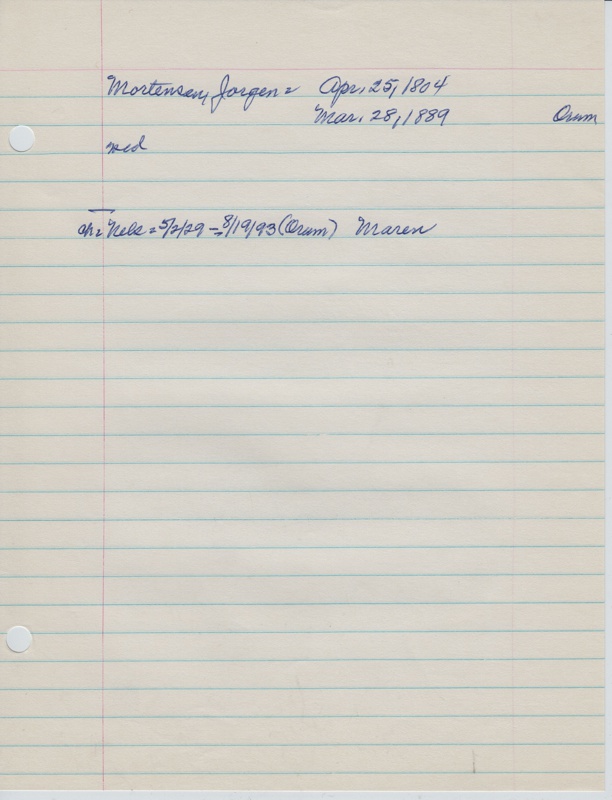 Mortensen, Jorgen = Apr. 25, 1804
Mar. 28, 1889 Orum
md
ch = Nels = 5/2/29 - 8/19/93 (Orum) Maren